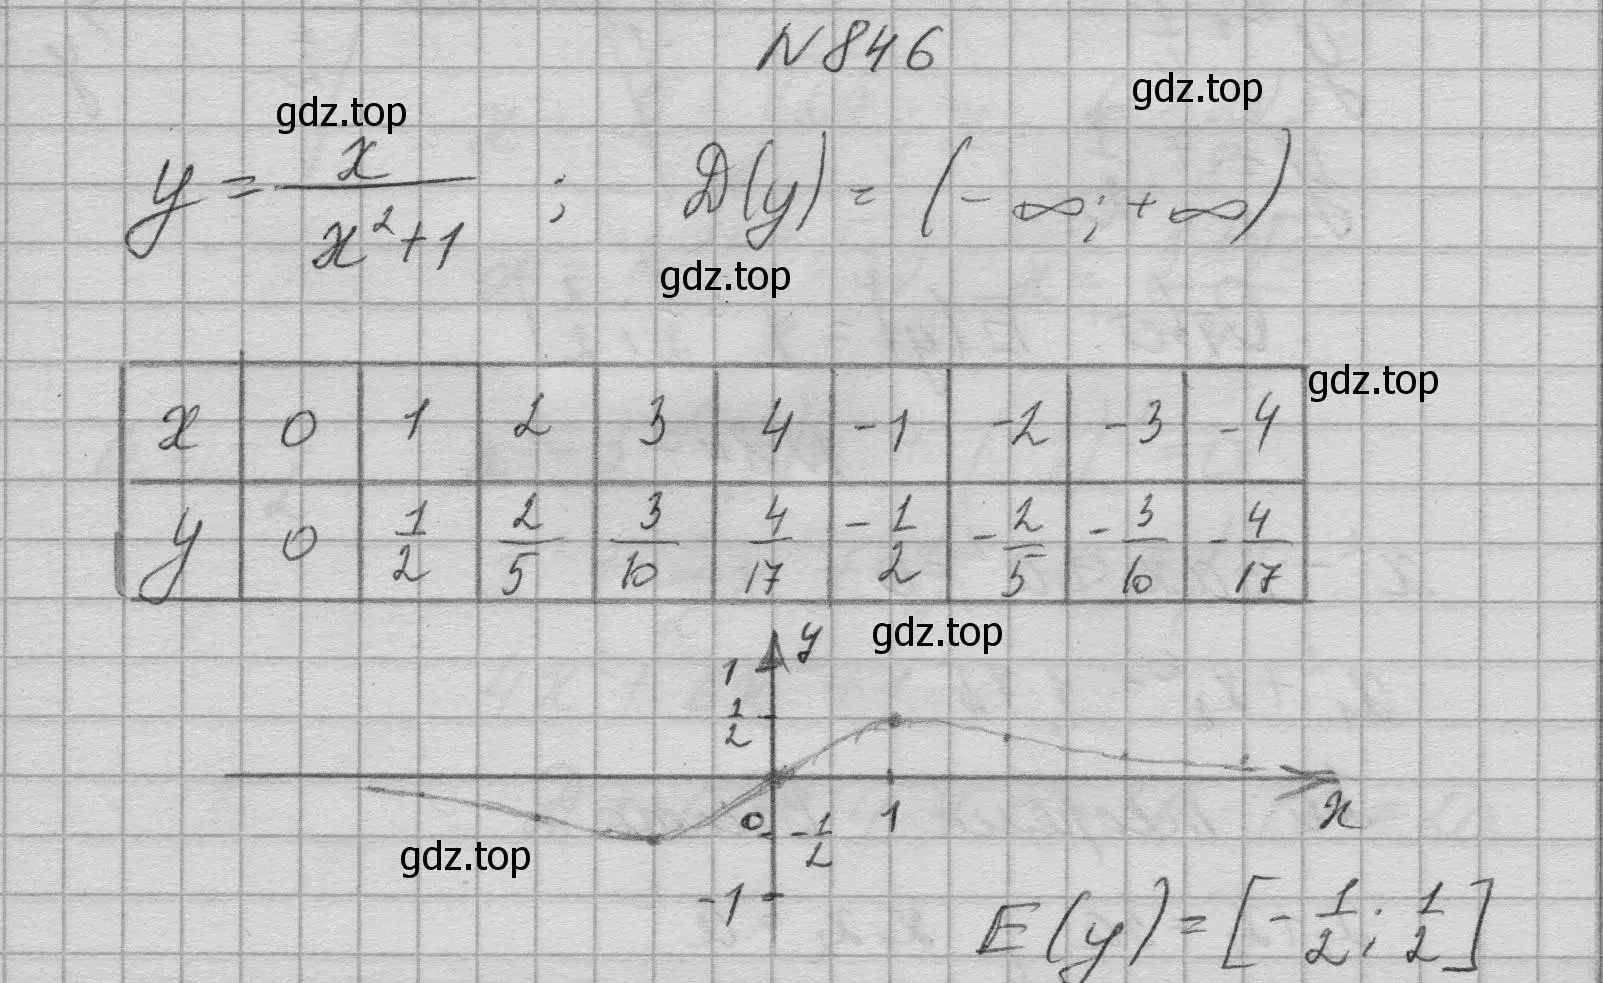 N846
gdz.top
gdz.top
y = x / (x² + 1) ; D(y) = (-∞; +∞)
gdz.top
gdz.top
x 0 1 2 3 4 -1 -2 -3 -4
y 0 1/2 2/5 3/10 4/17 -1/2 -2/5 -3/10 -4/17
gdz.top
y
1
1/2
0 -1/2 1 x
gdz.top
-1
E(y) = [-1/2; 1/2]